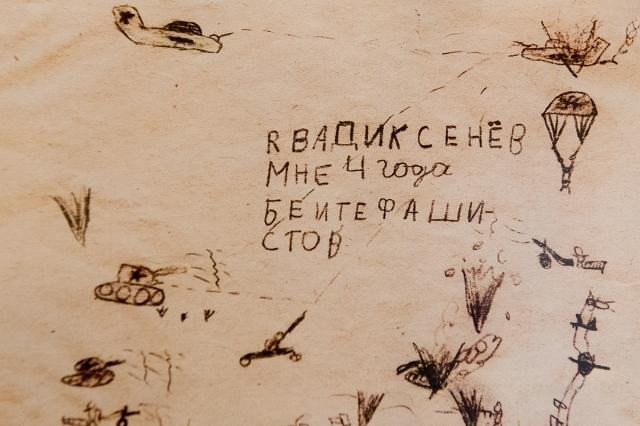 Я ВАДИК СЕНЁВ
МНЕ 4 года
БЕИТЕ ФАШИ-
СТОВ